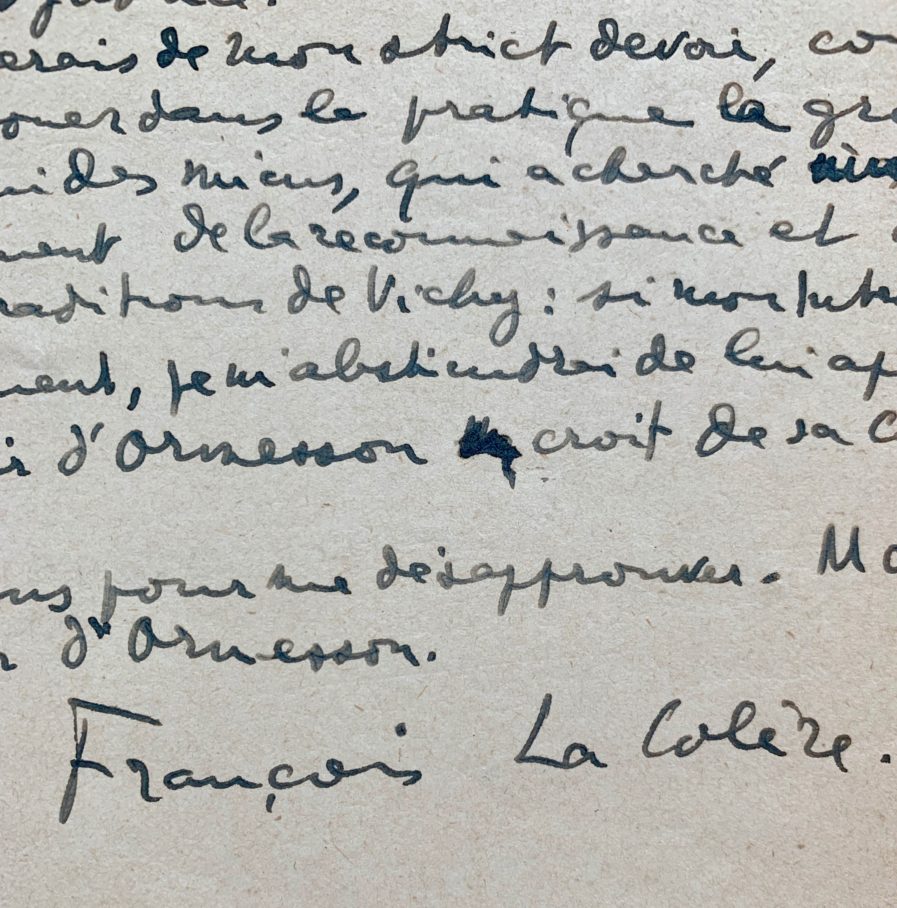 erais de mon strict devoir, co
ouer dans le pratique la gr
ui des miens, qui a cherché
ment de la reconnaissance et
raditions de Vichy : si mon
ment, je m'abstiendrai de lui ap
ir d'Ormesson croit de sa C
ns pour me désapprouver. Ma
n d'Ormesson.
François La Colère.